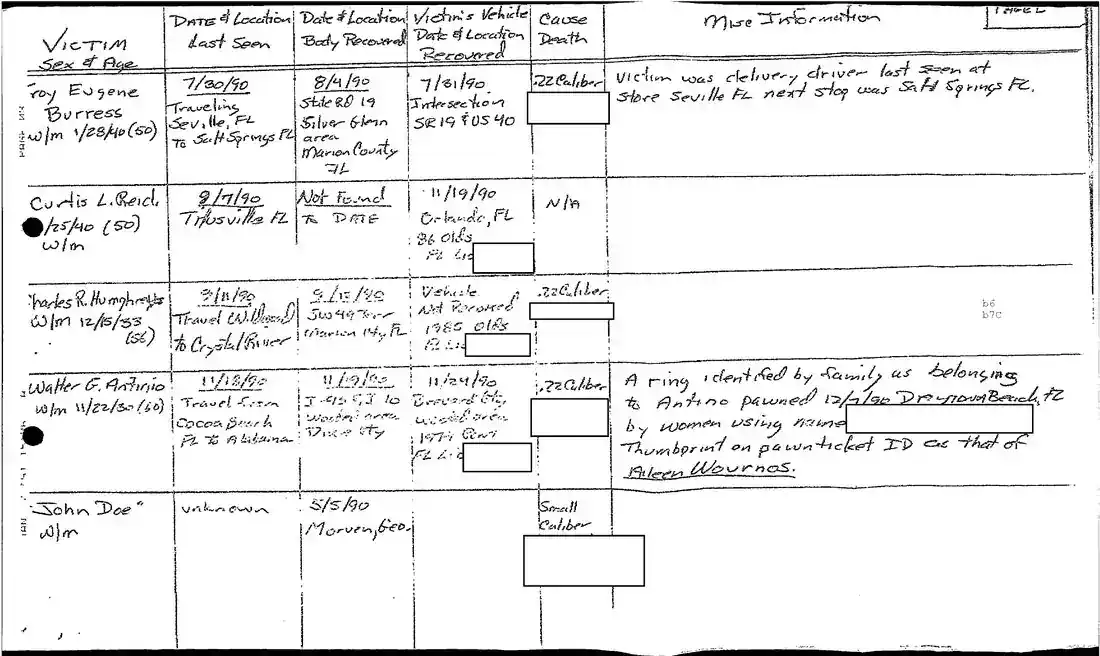 VICTIM
Sex & Age
DATE & Location
Last Seen
Date & Location
Body Recovered
Victim's Vehicle
Date & Location
Recovered
Cause
Death
Misc Information
Troy Eugene
Burress
W/m 1/28/40 (50)
7/30/90
Traveling
Seville, FL
to Salt Springs FL
8/4/90
State RD 19
Silver Glenn
area
Marion County
FL
7/31/90
Intersection
SR 19 & US 40
.22 Caliber
Victim was delivery driver last seen at
store Seville FL next stop was Salt Springs FL.
Curtis L. Reid
/25/40 (50)
W/m
Titusville FL
Not Found
to DATE
11/19/90
Orlando, FL
86 Olds
FL Lic
N/A
Charles R. Humphreys
W/m 12/15/33
(56)
9/11/90
Travel
to Crystal River
FL
Vehicle
Not Recovered
1985 Olds
FL Lic
.22 Caliber
b6
b7C
Walter G. Antinio
W/m 11/22/30 (60)
11/18/90
Travel from
Cocoa Beach
FL to Alabama
11/19/90
Wooded area
Dixie Cty
11/24/90
Brevard Cty
wooded area
FL Lic
.22 Caliber
A ring identified by family as belonging
to Antino pawned 12/7/90 Daytona Beach, FL
by women using name
Thumbprint on pawn ticket ID as that of
Aileen Wournos.
"John Doe"
W/m
unknown
5/5/90
Morven, Geo.
Small
Caliber